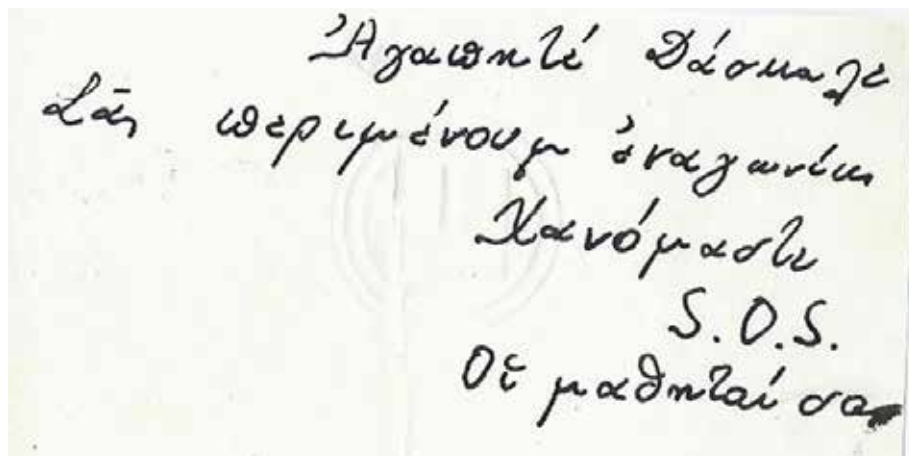 Ἀγαπητέ Δάσκαλε
Σᾶς περιμένουμε ἐναγωνίως
Χανόμαστε
S.O.S.
Οἱ μαθηταί σας